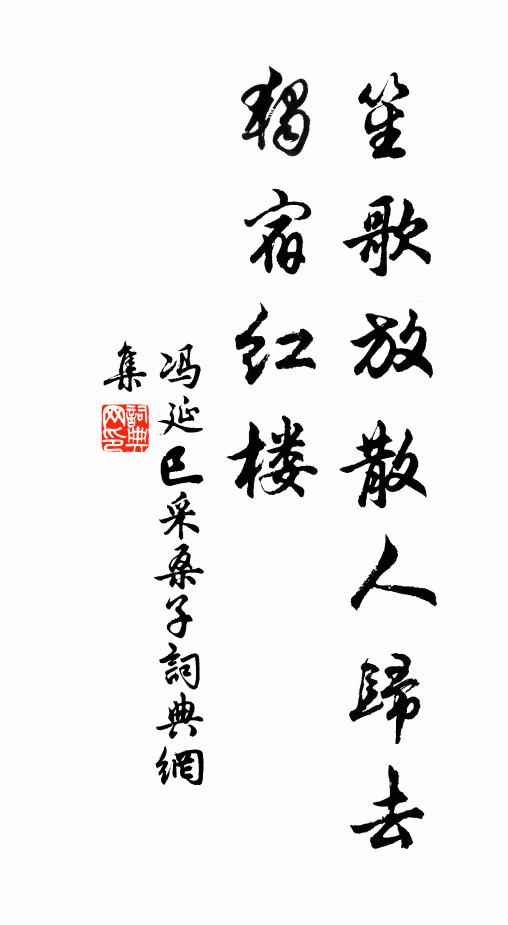 笙歌放散人歸去
獨宿红楼
冯延巳采桑子詞典網
集
詞典
网印